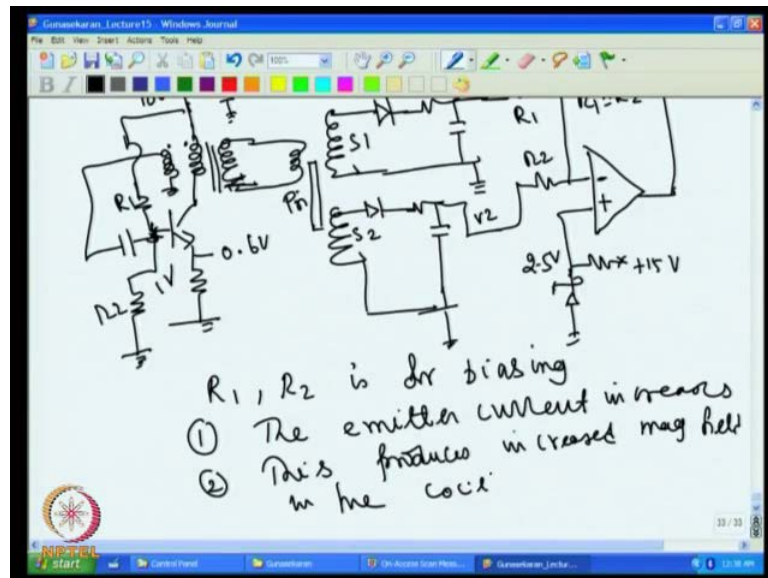 Gunasekaran_Lecture15 - Windows Journal
File Edit View Insert Actions Tools Help
100%
B I
R1
S1
R1
R2
Pri
S2
V2
0.6V
1V
R2
2.5V
+15V
-
+
R1, R2 is for biasing
① The emitter current increases
② This produces increased mag field
in the coil
33 / 33
NPTEL
start
Control Panel
Gunasekaran
On-Access Scan Mess...
Gunasekaran_Lectur...
12:38 AM